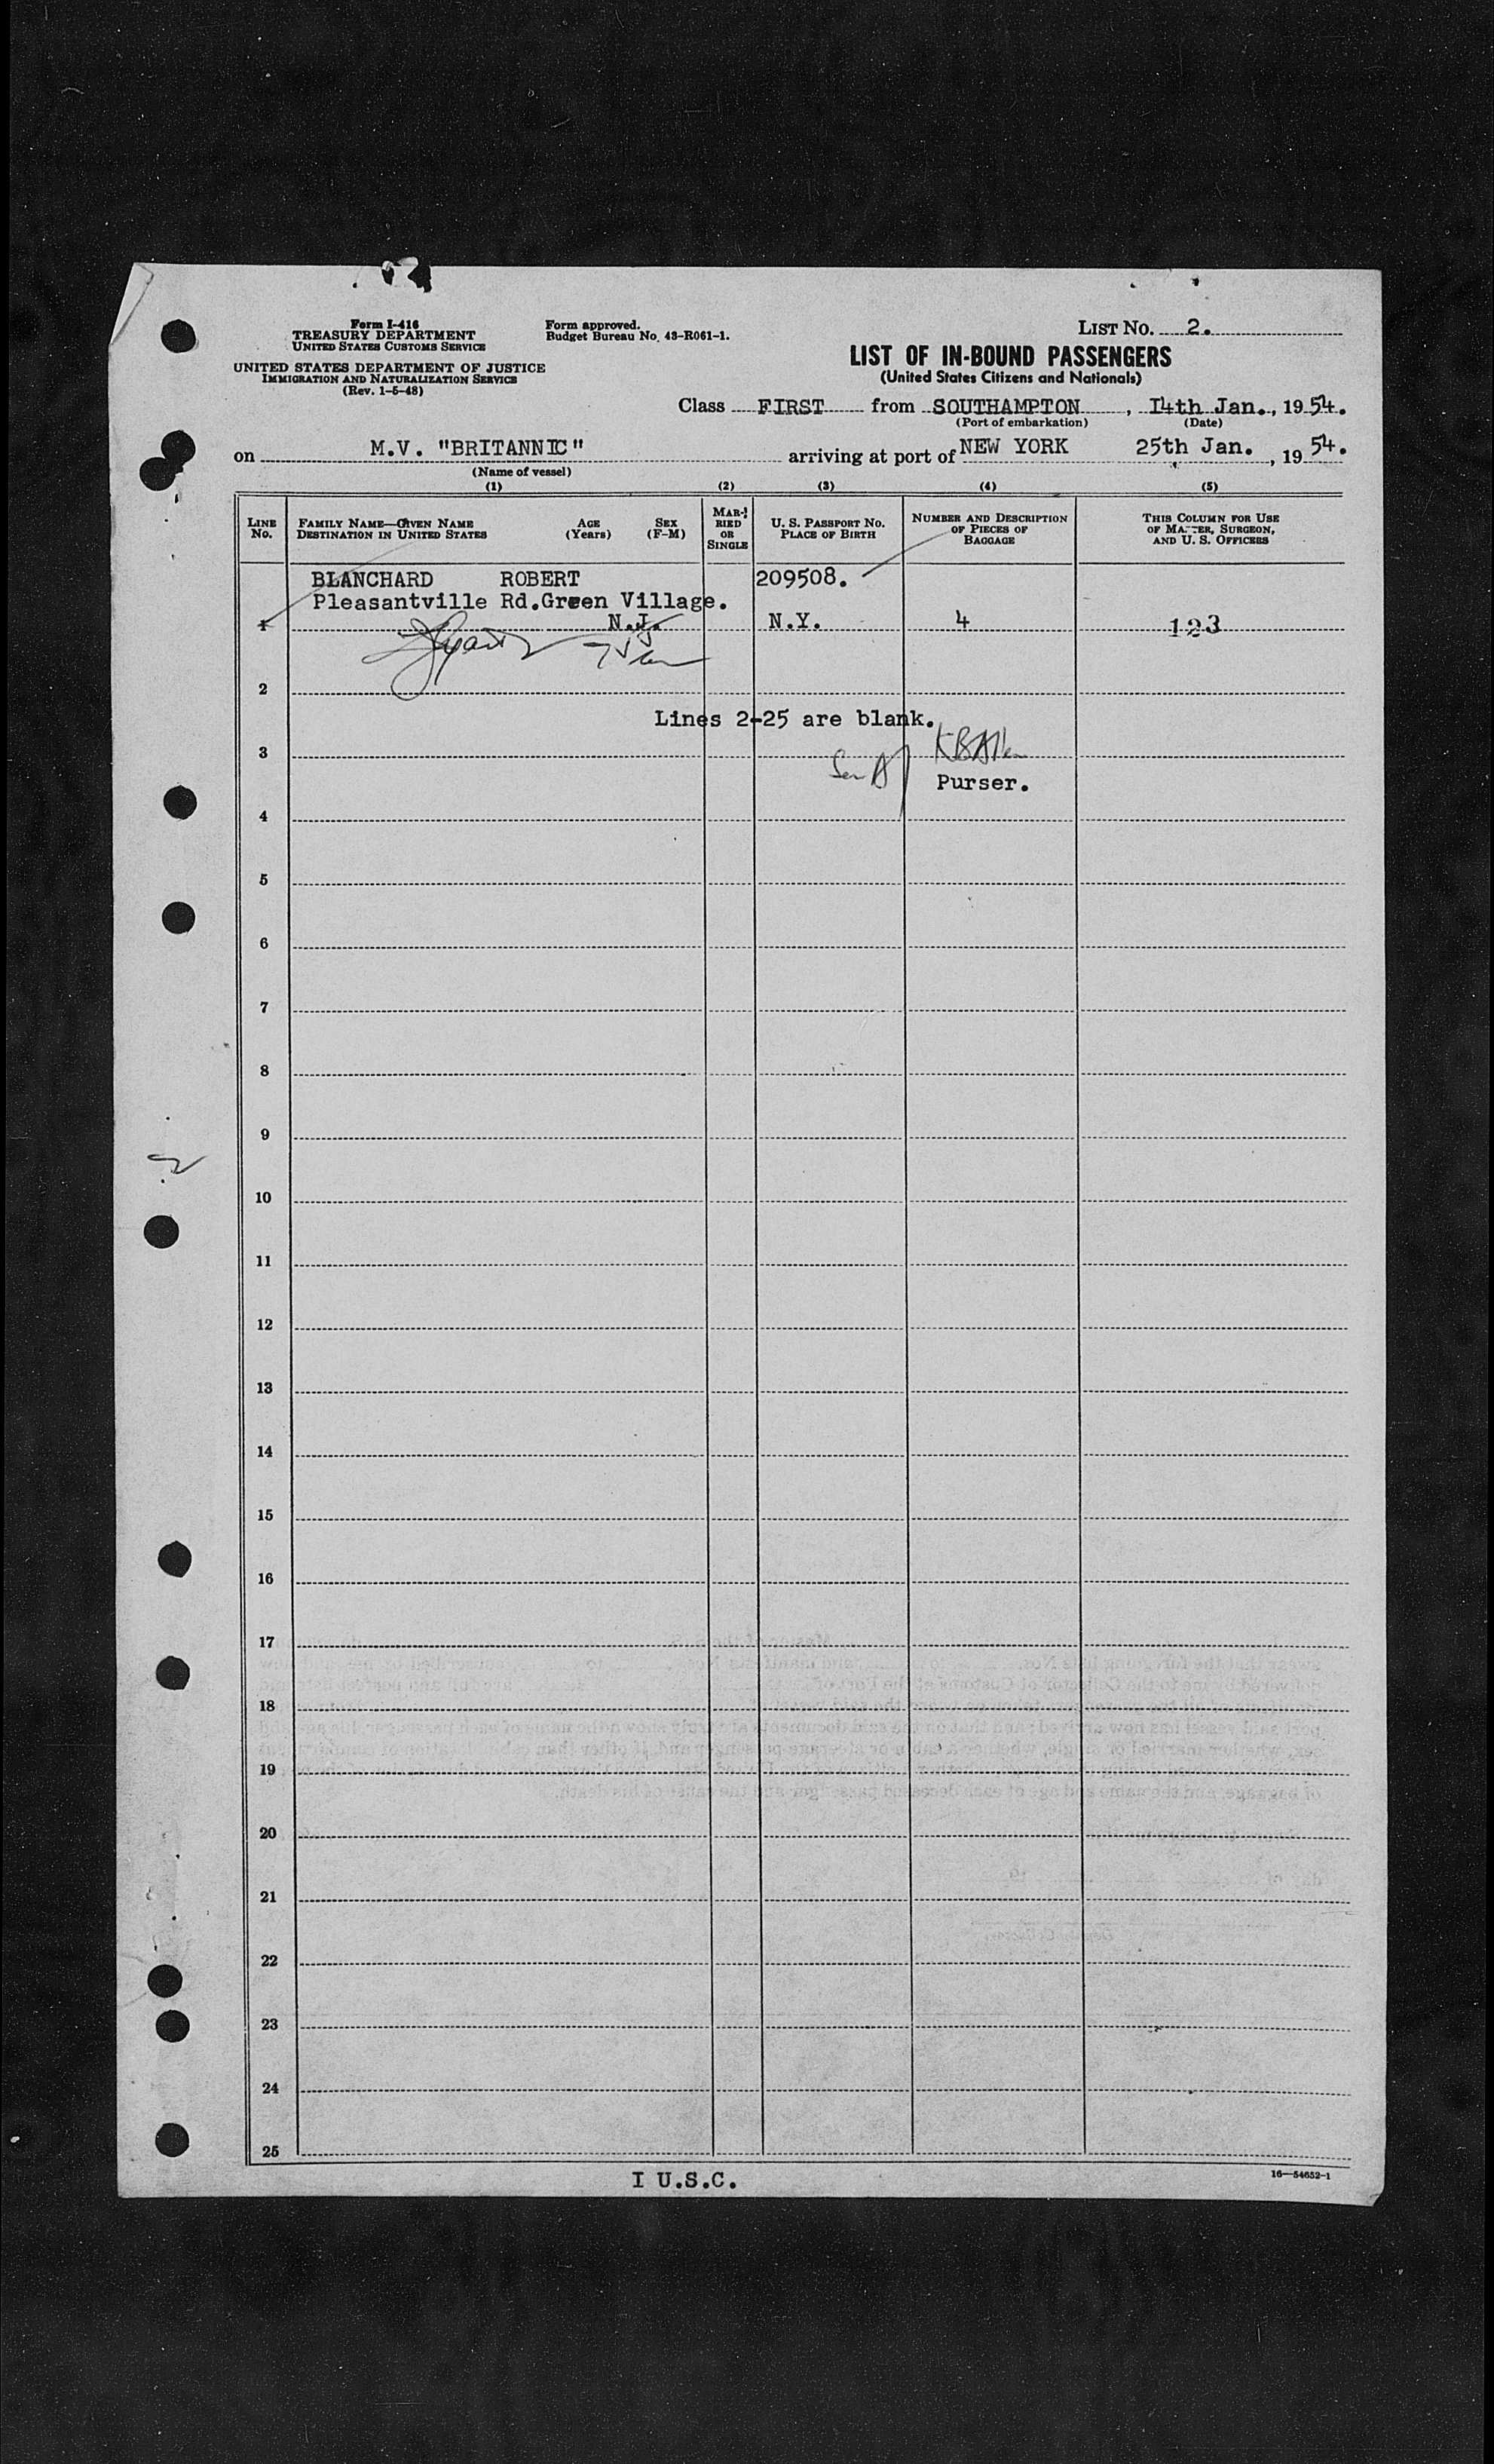 Form I-416
TREASURY DEPARTMENT
UNITED STATES CUSTOMS SERVICE
UNITED STATES DEPARTMENT OF JUSTICE
IMMIGRATION AND NATURALIZATION SERVICE
(Rev. 1-5-48)
Form approved.
Budget Bureau No. 43-R061-1.
LIST No. 2.
LIST OF IN-BOUND PASSENGERS
(United States Citizens and Nationals)
Class FIRST from SOUTHAMPTON, 14th Jan., 1954.
(Port of embarkation) (Date)
on M.V. "BRITANNIC" arriving at port of NEW YORK 25th Jan., 1954.
(Name of vessel)
(1) (2) (3) (4) (5)
LINE No.
FAMILY NAME—GIVEN NAME AGE SEX
DESTINATION IN UNITED STATES (Years) (F-M)
MARRIED OR SINGLE
U. S. PASSPORT No.
PLACE OF BIRTH
NUMBER AND DESCRIPTION
OF PIECES OF
BAGGAGE
THIS COLUMN FOR USE
OF MASTER, SURGEON,
AND U. S. OFFICERS
BLANCHARD ROBERT 209508.
Pleasantville Rd.Green Village.
1 N.J. N.Y. 4 123
2
Lines 2-25 are blank.
3
Purser.
4
5
6
7
8
9
10
11
12
13
14
15
16
17
18
19
20
21
22
23
24
25
I U.S.C.
16—54652-1